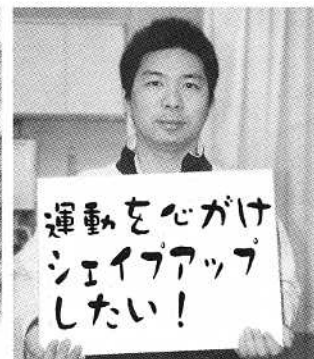 運動を心がけ
シェイプアップ
したい！